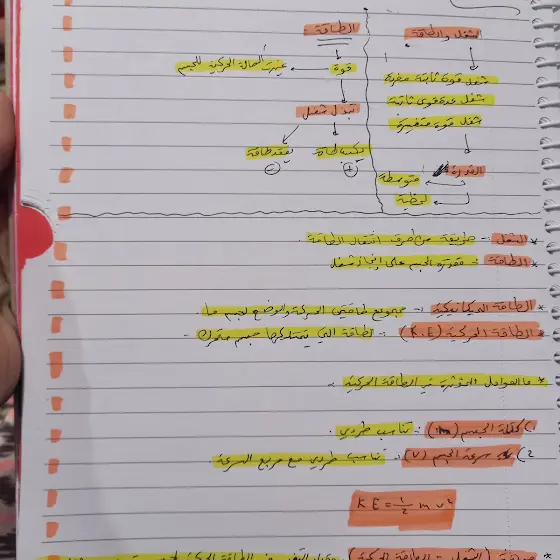 الشغل والطاقة
شغل قوى ثابتة مفردة
شغل عدة قوى ثابتة
شغل قوة متغيرة
القدرة
متوسطة
لحظية
الطاقة
قوة
غيرت الحالة الحركية للجسم
تبذل شغل
يكسب طاقة
يفقد طاقة
+
-
* الشغل :- طريقة من طرق انتقال الطاقة.
* الطاقة :- مقدرة الجسم على إنجاز شغل
* الطاقة الميكانيكية :- مجموع طاقتي الحركة والوضع لجسم ما.
* الطاقة الحركية (K.E) :- الطاقة التي يمتلكها جسم متحرك -
* ما العوامل المؤثرة في الطاقة الحركية
1) كتلة الجسم (m) :- تناسب طردي.
2) سرعة الجسم (v) :- تناسب طردي مع مربع السرعة
KE = 1/2 m v²
(الشغل - الطاقة الحركية)